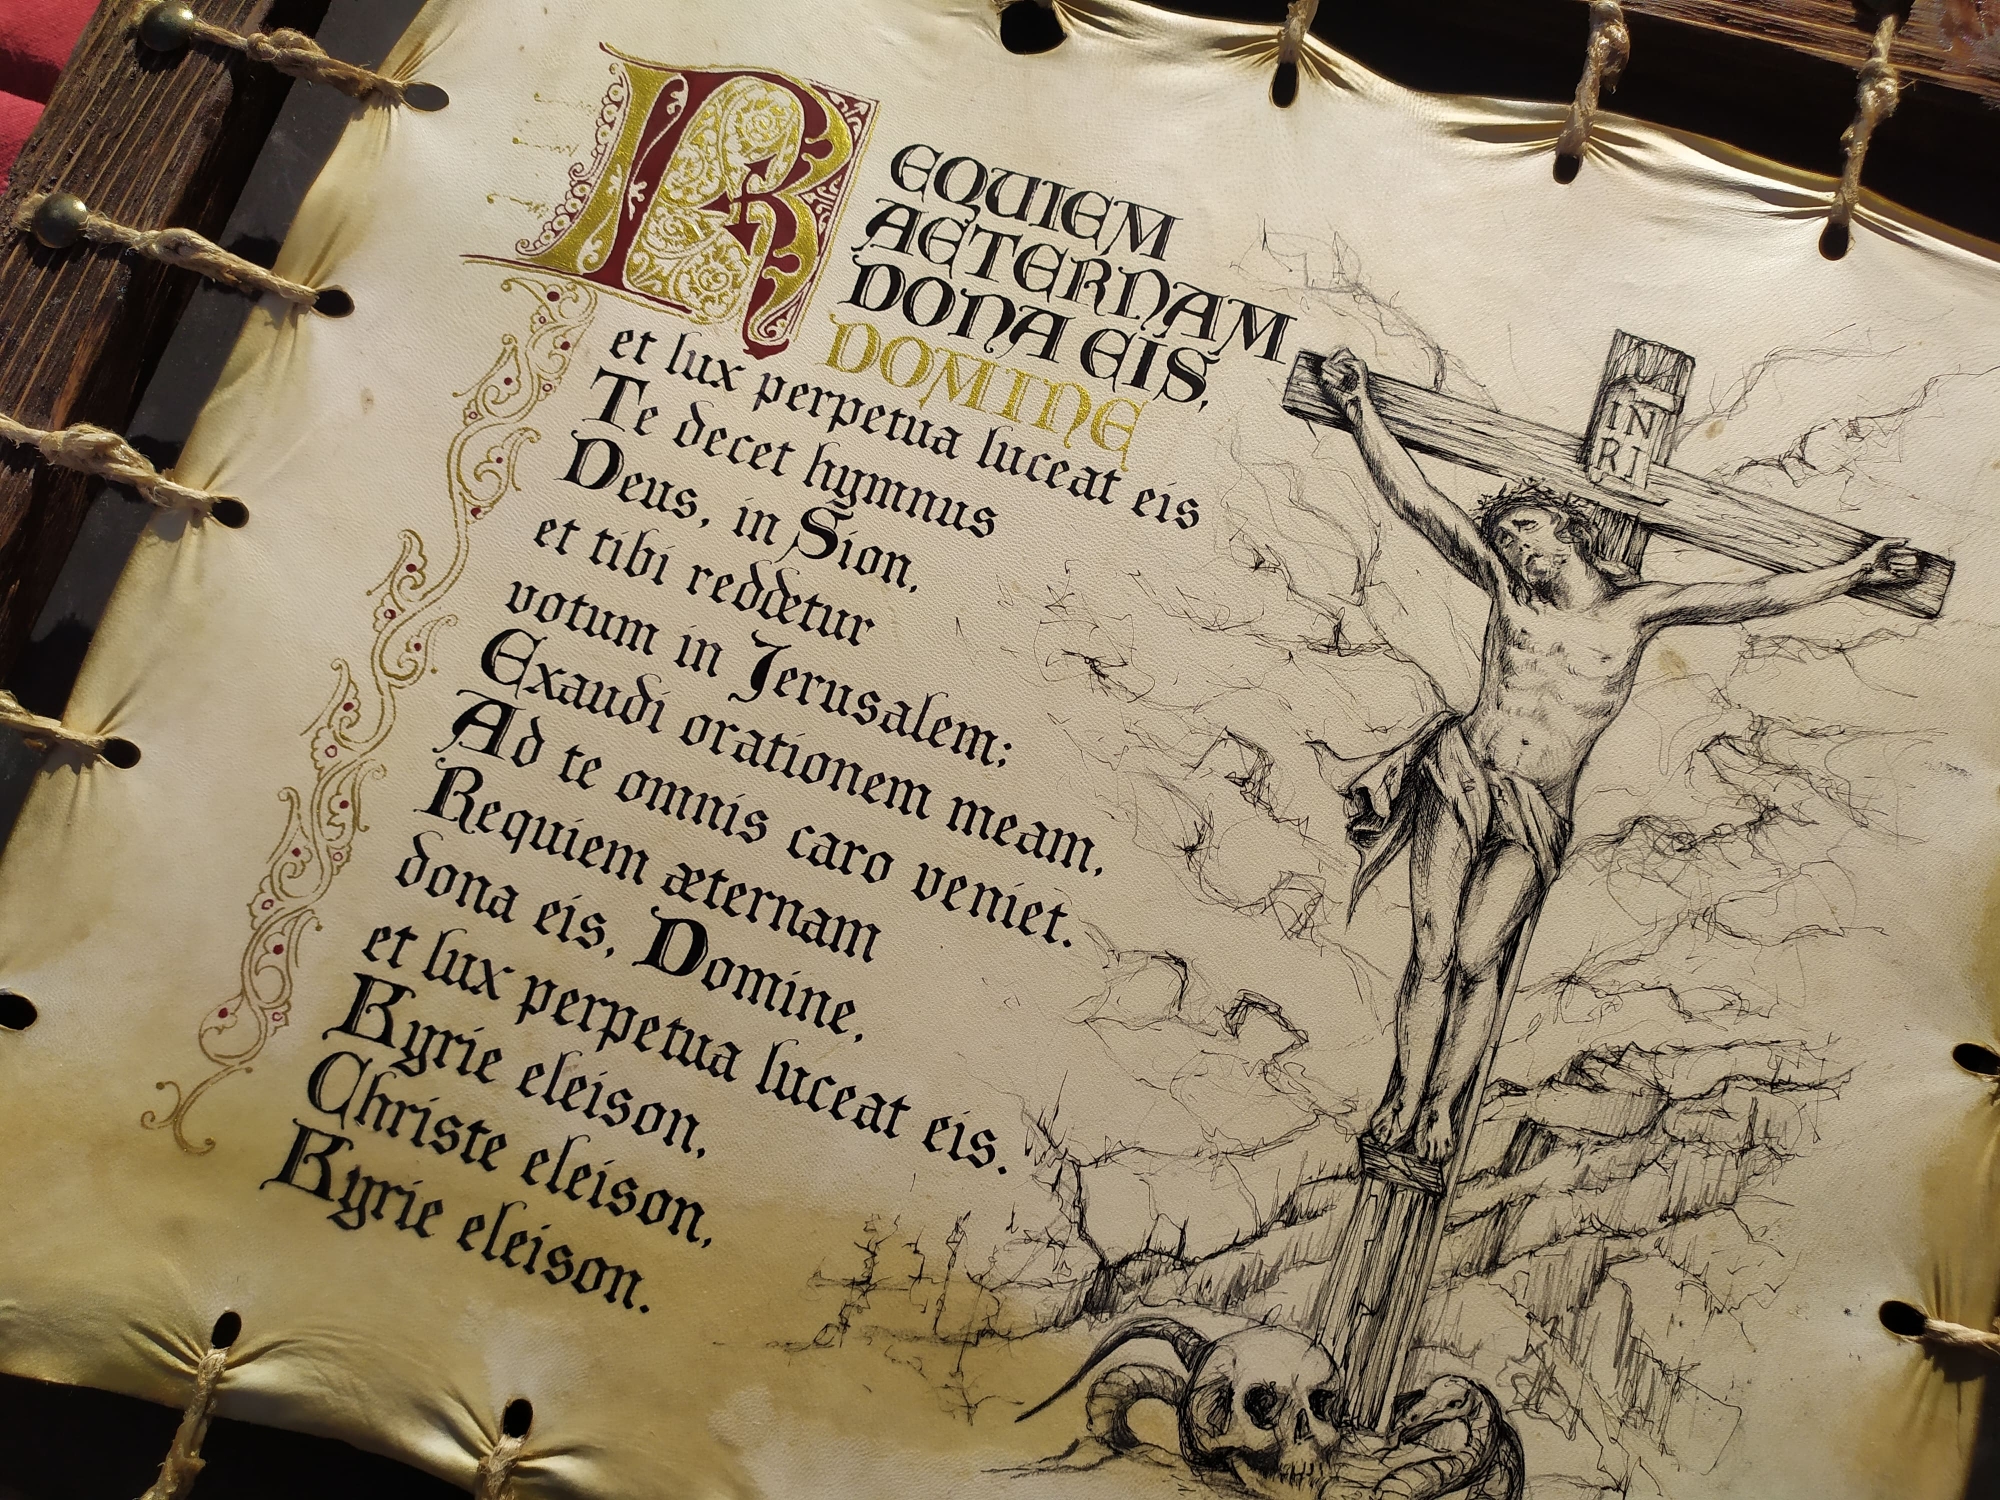 REQUIEM
AETERNAM
DONA EIS,
DOMINE
et lux perpetua luceat eis
Te decet hymnus
Deus, in Sion,
et tibi reddetur
votum in Jerusalem;
Exaudi orationem meam,
Ad te omnis caro veniet.
Requiem æternam
dona eis, Domine,
et lux perpetua luceat eis.
Kyrie eleison,
Christe eleison,
Kyrie eleison.
IN
RI